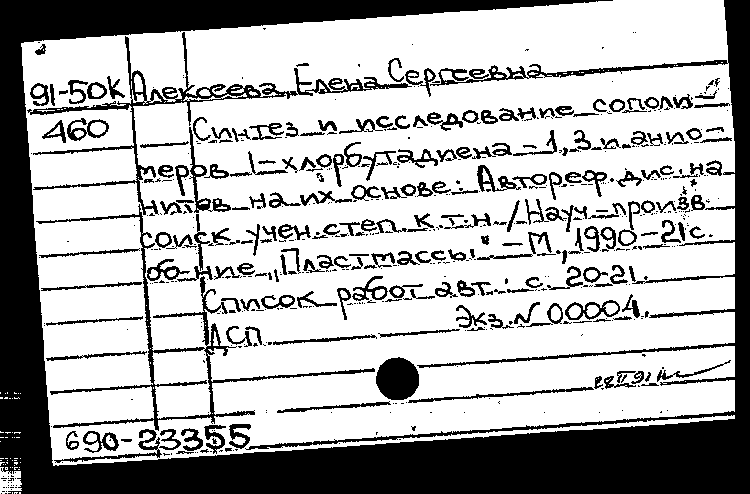 91-50К Алексеева, Елена Сергеевна
460 Синтез и исследование сополи-
меров 1-хлорбутадиена-1,3 и анио-
нитов на их основе: Автореф. дис. на
соиск. учен. степ. к.т.н. /Науч.-произв.
об-ние „Пластмассы" - М., 1990-21с.
Список работ авт.: с. 20-21.
ДСП Экз. N 00004.
690-23355